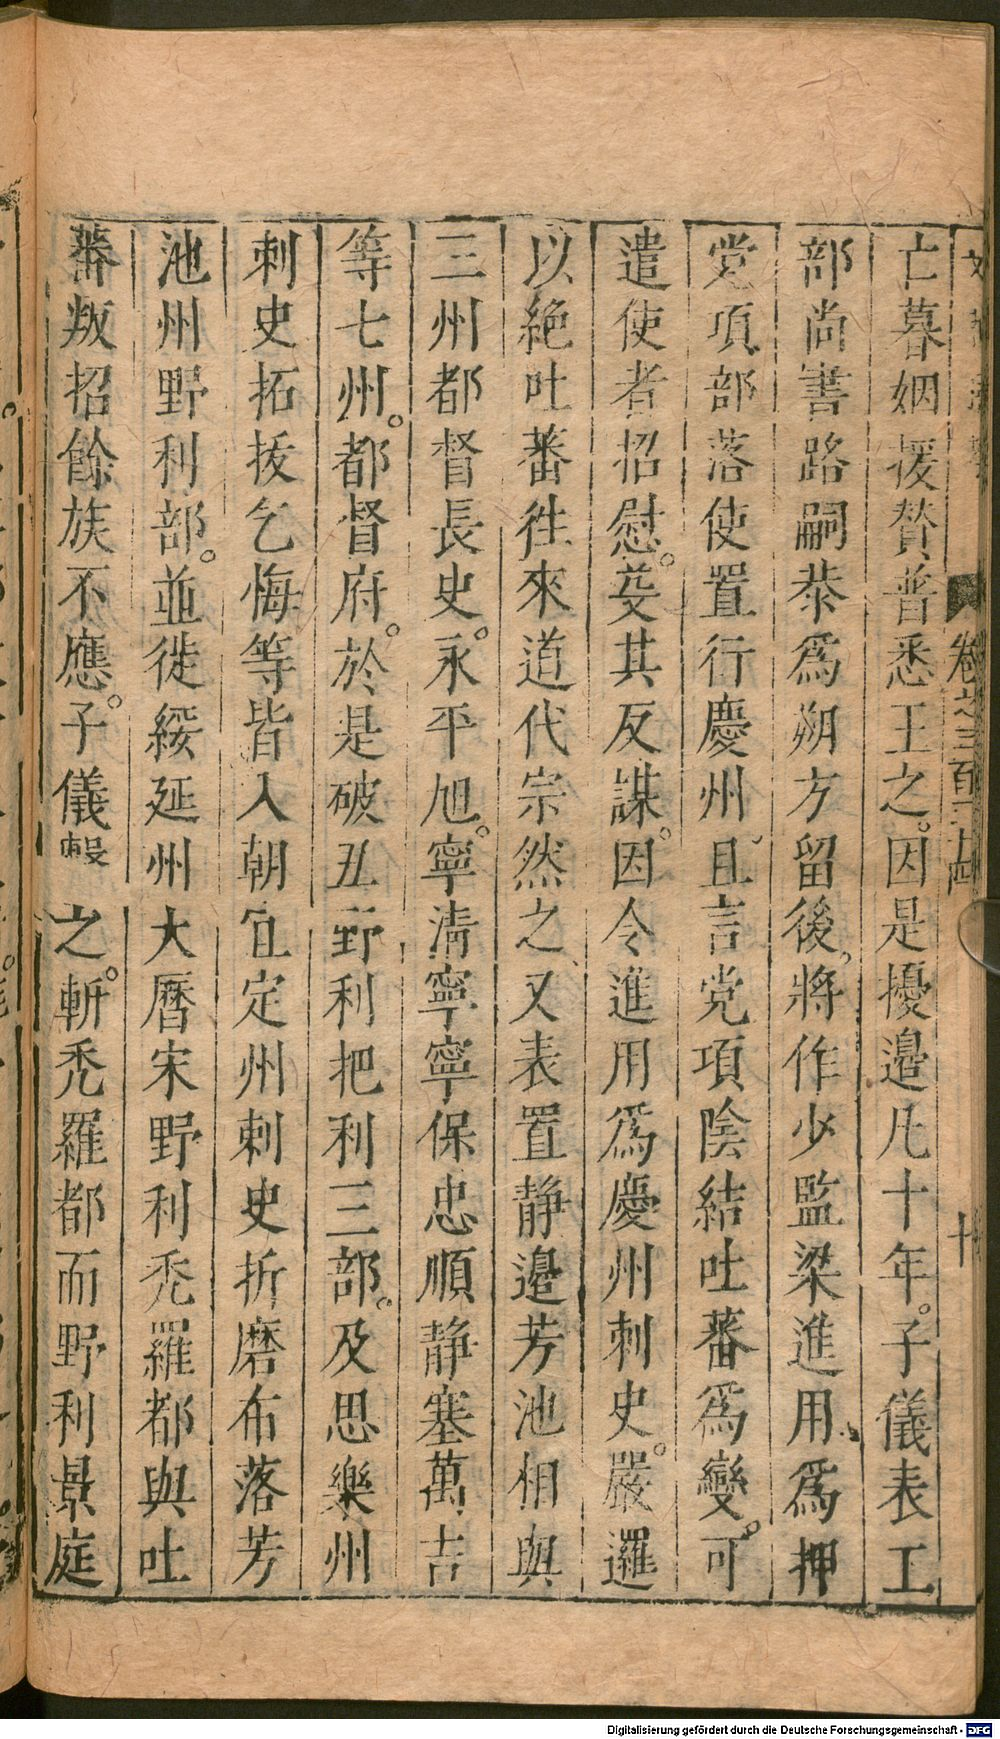 卷之三百
十
亡暮姻援賛普悉王之。因是擾邉凡十年。子儀表工
部尚書路嗣恭爲朔方留後。將作少監梁進用爲押
党項部落使置行慶州。且言党項陰結吐蕃爲變。可
遣使者招慰。芟其反謀。因令進用爲慶州刺史。嚴邏
以絶吐蕃徃來道代宗然之又表置静邉芳池相與
三州都督長史。永平旭。寧淸寧寧保忠順静塞萬吉
等七州。都督府。於是破丑野利把利三部。及思樂州
刺史拓拔乞悔等皆入朝宜定州刺史折磨布落芳
池州野利部。並徙綏延州大曆宋野利禿羅都與吐
蕃叛招餘族不應。子儀擊之。斬禿羅都而野利景庭
Digitalisierung gefördert durch die Deutsche Forschungsgemeinschaft - DFG